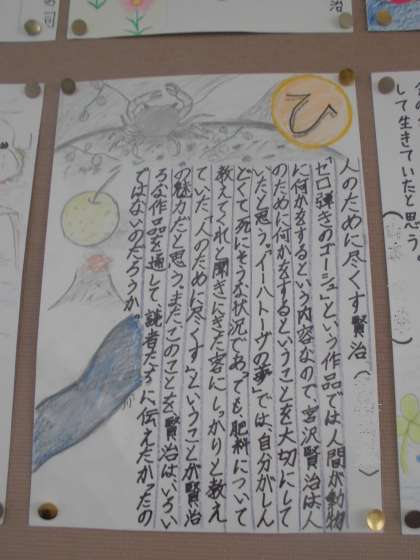 び
人のために尽くす賢治(
「セロ弾きのゴーシュ」という作品では、人間が動物
に何かをするという内容なので、宮沢賢治は、人
のために何かをするということを大切にして
いたと思う。「イーハトーヴの夢」では、自分がしん
どくて死にそうな状況であっても、肥料について
教えてくれと聞きにきた客にしっかりと教え
ていた。「人のために尽くす」ということが賢治
の魅力だと思う。またこのことを、賢治は、いろい
ろな作品を通して、読者たちに伝えたかったの
ではないのだろうか。
して生きていたと思う。
治